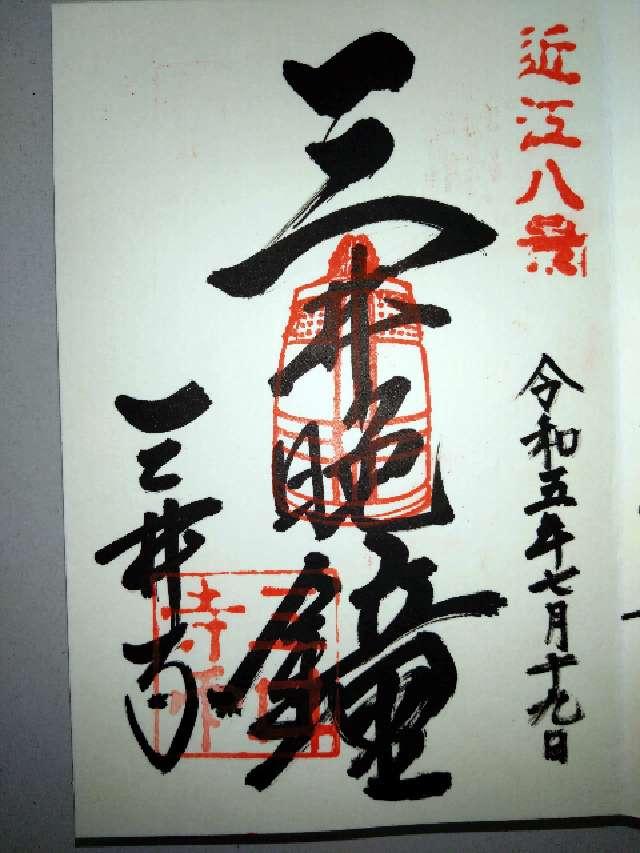 近江八景
令和五年七月十九日
三井晩鐘
三井寺
三井
寺印